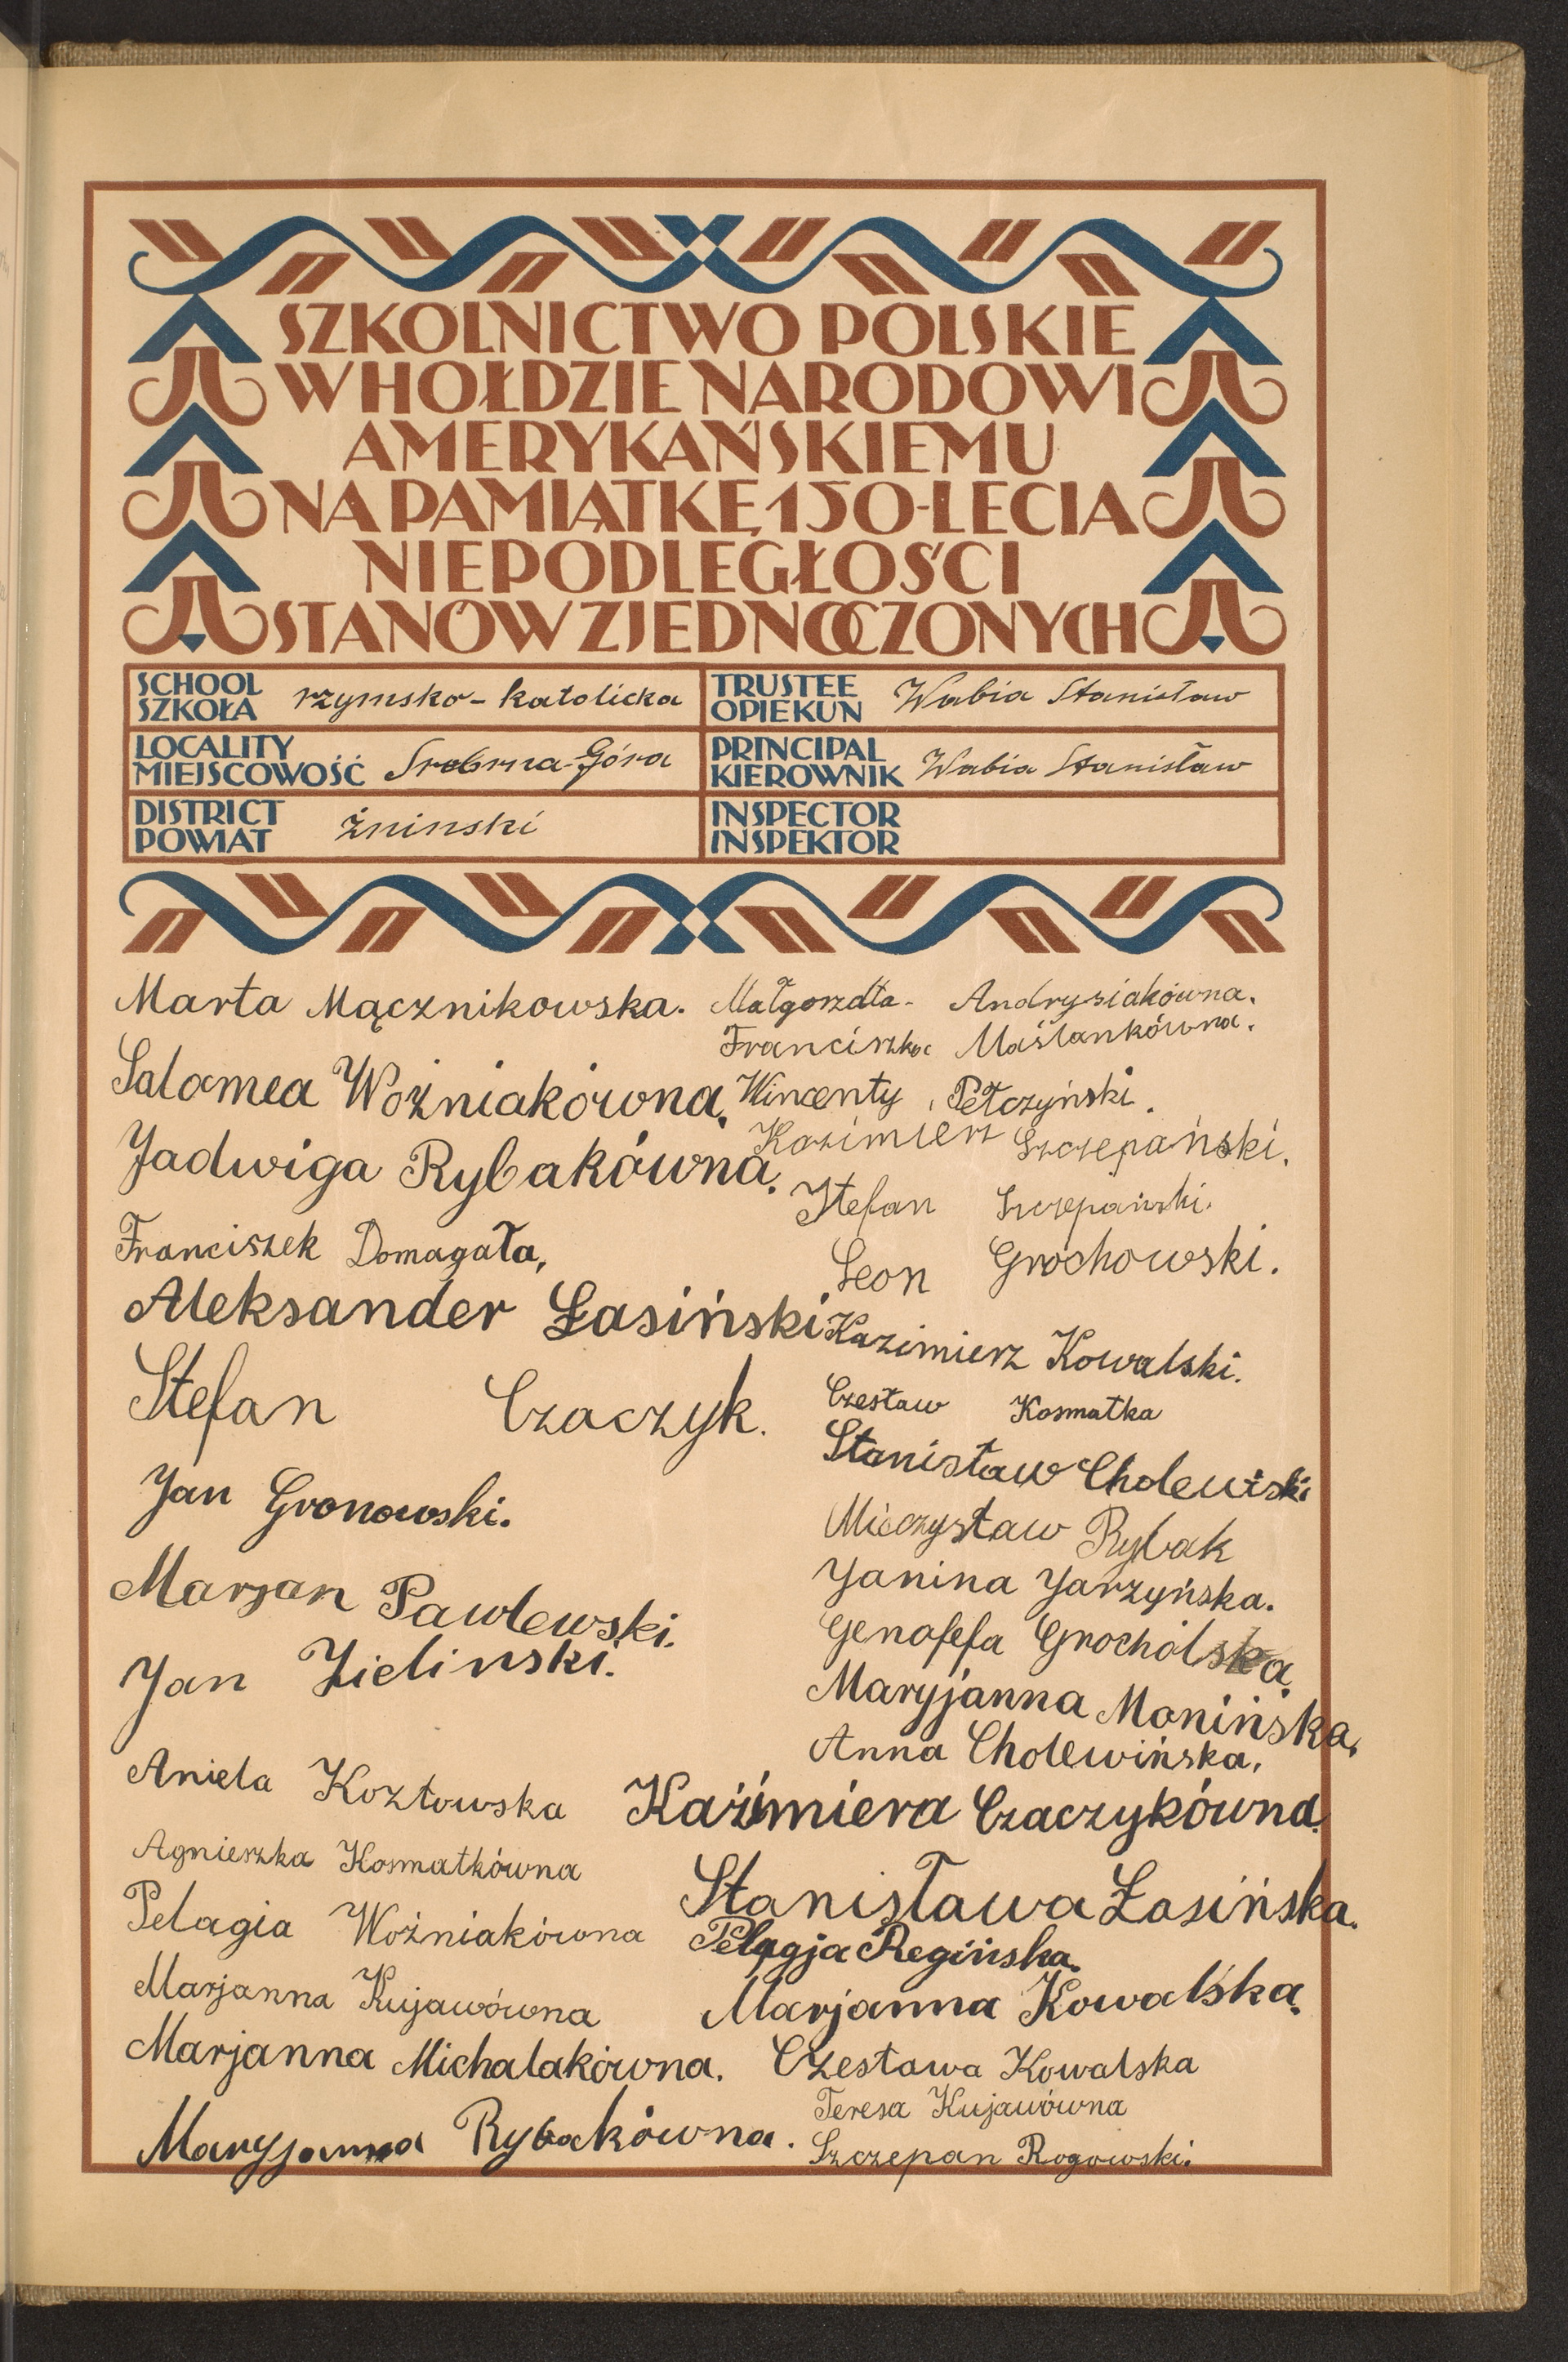 SZKOLNICTWO POLSKIE
W HOŁDZIE NARODOWI
AMERYKAŃSKIEMU
NA PAMIĄTKĘ 150-LECIA
NIEPODLEGŁOŚCI
STANÓW ZJEDNOCZONYCH
SCHOOL
SZKOŁA
rzymsko-katolicka
TRUSTEE
OPIEKUN
Wabia Stanisław
LOCALITY
MIEJSCOWOŚĆ
Srebrna-Góra
PRINCIPAL
KIEROWNIK
Wabia Stanisław
DISTRICT
POWIAT
żninski
INSPECTOR
INSPEKTOR
Marta Mącznikowska.
Salomea Woźniakówna.
Jadwiga Rybakówna.
Franciszek Domagała,
Aleksander Łasiński
Stefan Czaczyk.
Jan Gronowski.
Marjan Pawlewski.
Jan Zielinski.
Aniela Kozłowska
Agnieszka Kosmatkówna
Pelagia Woźniakówna
Marjanna Kujawówna
Marjanna Michalakówna.
Maryjanna Rybakówna.
Małgorzata- Andrysiakówna.
Franciszka Maślankówna.
Wincenty Pełczyński.
Kazimierz Szczepański.
Stefan Szczepański.
Leon Grochowski.
Kazimierz Kowalski.
Czesław Kosmatka
Stanisław Cholewiski
Mieczysław Rybak
Janina Jarzyńska.
Genofefa Grocholska.
Maryjanna Monińska,
Anna Cholewińska,
Kaźimiera Czaczykówna.
Stanisława Łasińska.
Pelagja Regińska.
Marjanna Kowalska.
Czesława Kowalska
Teresa Kujawówna
Szczepan Rogowski.